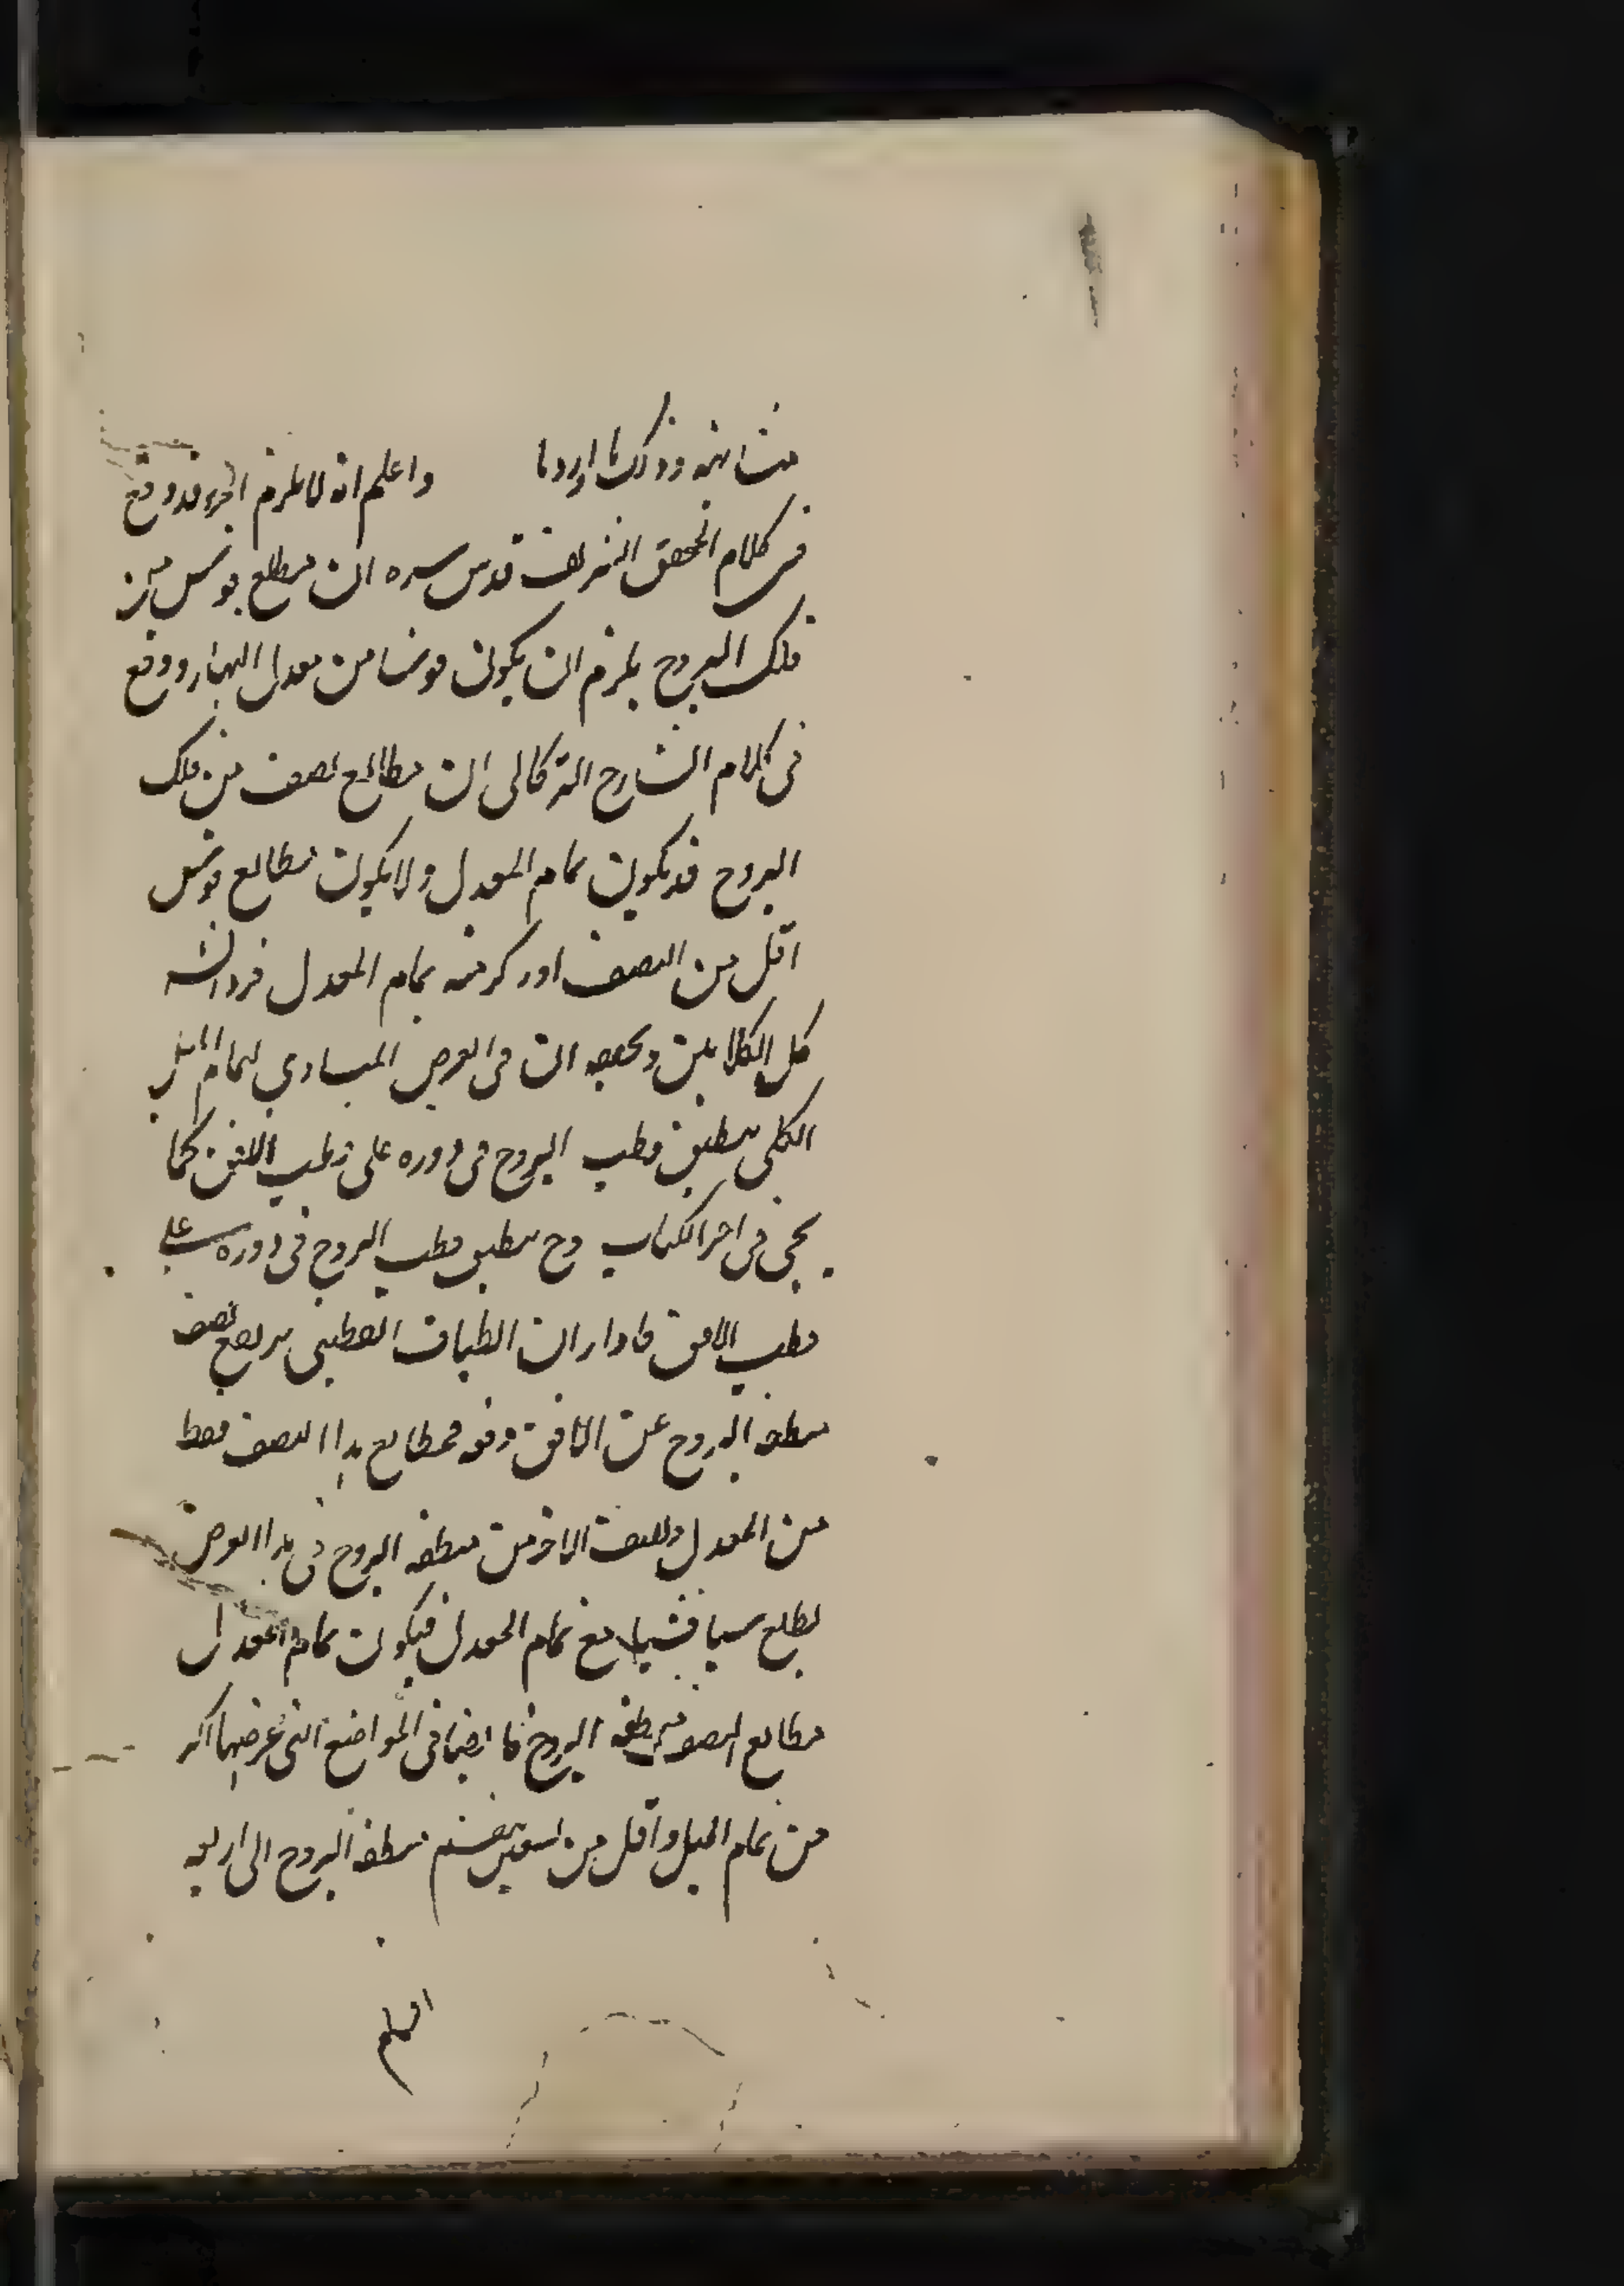 متشابهة وذلك ما اوردنا واعلم انه لا يلزم قد وقع
فى كلام المحقق الشريف قدس سره ان مطلع قوس من
فلك البروج يلزم ان يكون قوسا من معدل النهار ووقع
فى كلام الشارح التركمانى ان مطالع نصف من فلك
البروج قد يكون تمام المعدل ولا يكون مطالع قوس
اقل من النصف او اكثر منه تمام المعدل
كل الكلامين وتحقيقه ان فى العرض المساوى لتمام الميل
الكلى ينطبق قطب البروج فى دوره على قطب الافق كما
يجئ فى اخر الكتاب وح ينطبق قطب البروج فى دوره على
قطب الافق فاذا ان انطباق القطبين يرتفع نصف
منطقة البروج عن الافق دفعة فمطالع هذا النصف نقطة
من المعدل والنصف الاخر من منطقة البروج فى هذا العرض
يطلع شيئا فشيئا مع تمام المعدل فيكون تمام المعدل
مطالع النصف من منطقة البروج فاما ايضا فى المواضع التى عرضها اكثر
من تمام الميل واقل من تسعين ينقسم منطقة البروج الى اربعة
اقسام